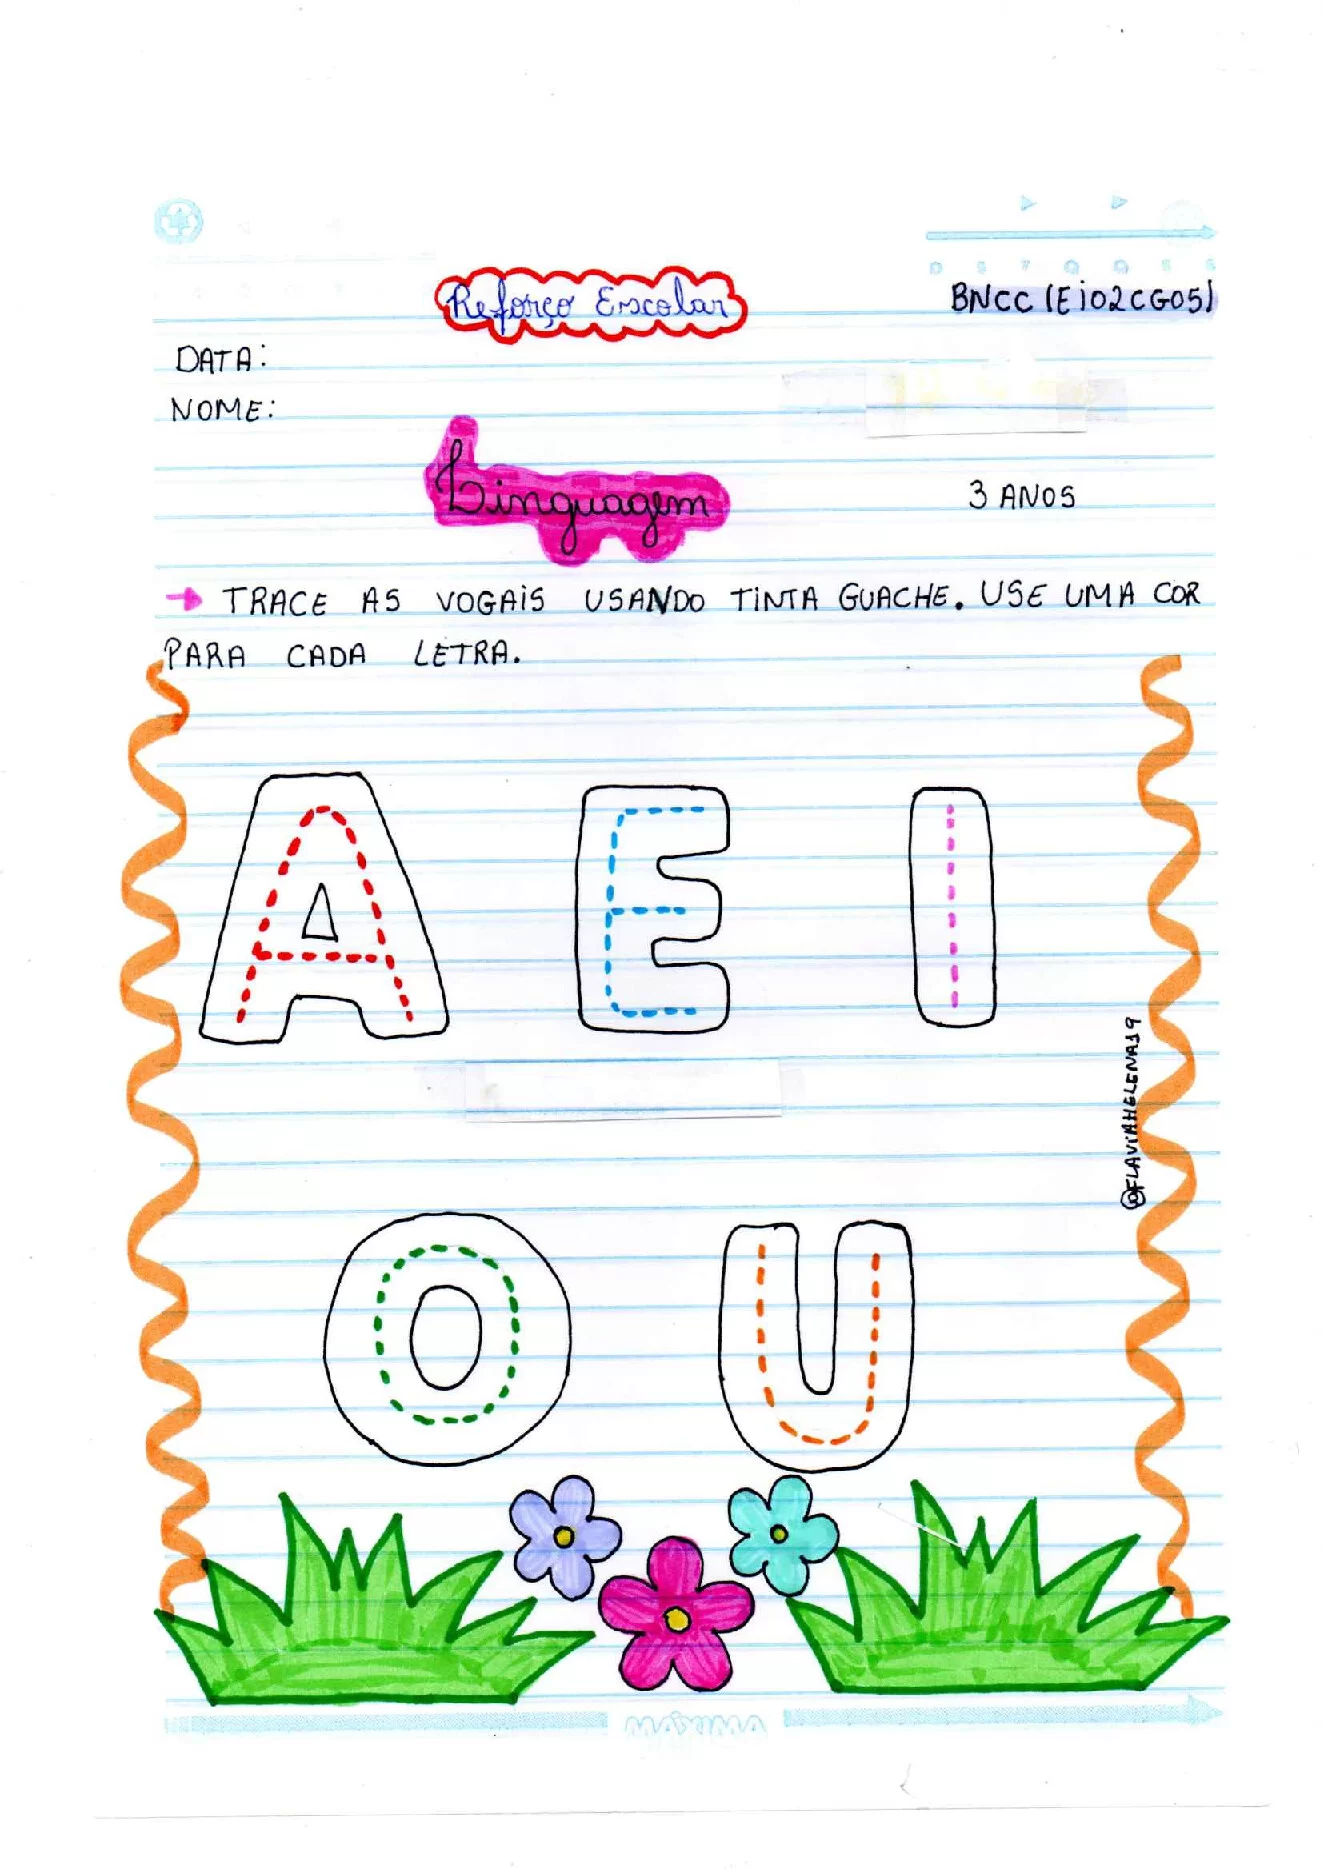 D S T Q Q S S
Reforço Escolar
BNCC (Ei02CG05)
DATA:
NOME:
Linguagem
3 ANOS
→ TRACE AS VOGAiS USANDO TiNTA GUACHE. USE UMA COR
PARA CADA LETRA.
A E I
@FLAViAHELENA19
O U
MÁXIMA